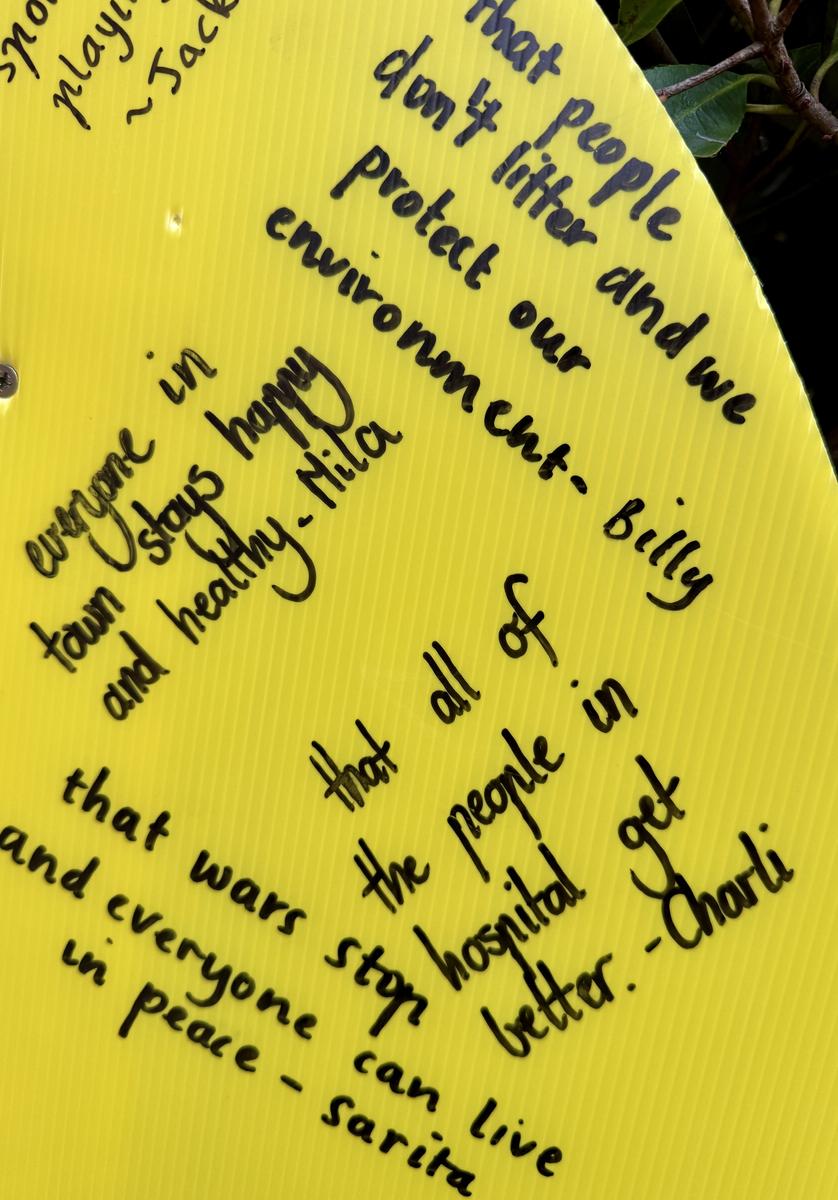 playi
~Jack
that people
don't litter and we
protect our
environment- Billy
everyone in
town stays happy
and healthy - Mila
that all of
the people in
hospital get
better. - Charli
that wars stop
and everyone can live
in peace - sarita